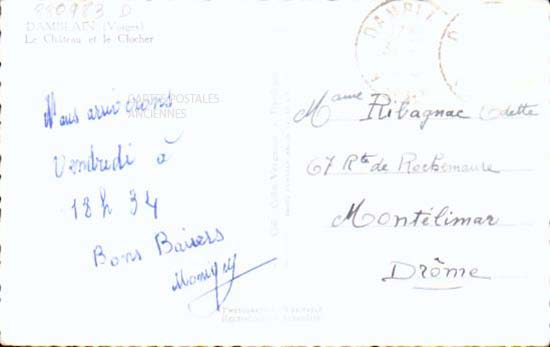 280983 D
DAMBLAIN (Vosges)
Le Château et le Clocher
DAMBL
CARTES POSTALES
ANCIENNES
Nous arriverons
Vendredi à
18h 34
Bons Baisers
Mme Ribagnac Odette
67 Rte de Rochemaure
Montélimar
Drôme